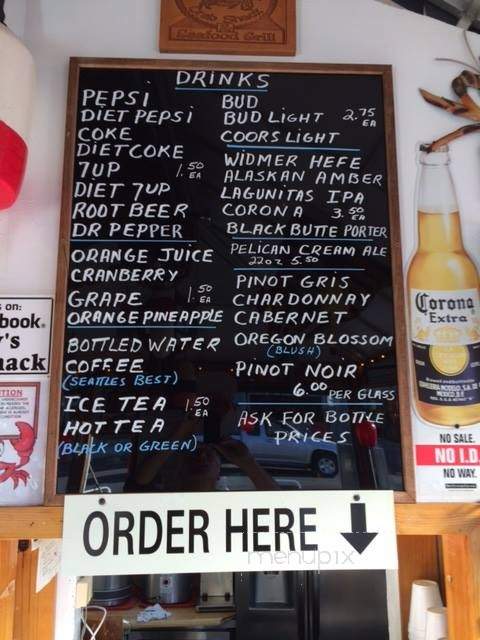 Crab Shack
Seafood Grill
DRINKS
PEPSI
DIET PEPSI
COKE
DIET COKE
7UP 1.50 EA
DIET 7UP
ROOT BEER
DR PEPPER
ORANGE JUICE
CRANBERRY
GRAPE 1.50 EA
ORANGE PINEAPPLE
BOTTLED WATER
COFFEE
(SEATTLES BEST)
ICE TEA 1.50 EA
HOT TEA
(BLACK OR GREEN)
BUD
BUD LIGHT 2.75 EA
COORS LIGHT
WIDMER HEFE
ALASKAN AMBER
LAGUNITAS IPA
CORONA 3.50 EA
BLACK BUTTE PORTER
PELICAN CREAM ALE
22oz 5.50
PINOT GRIS
CHARDONNAY
CABERNET
OREGON BLOSSOM
(BLUSH)
PINOT NOIR
6.00 PER GLASS
ASK FOR BOTTLE
PRICES
ORDER HERE
menupix
s on:
book.
r's
hack
Corona
Extra
NO SALE.
NO I.D.
NO WAY.